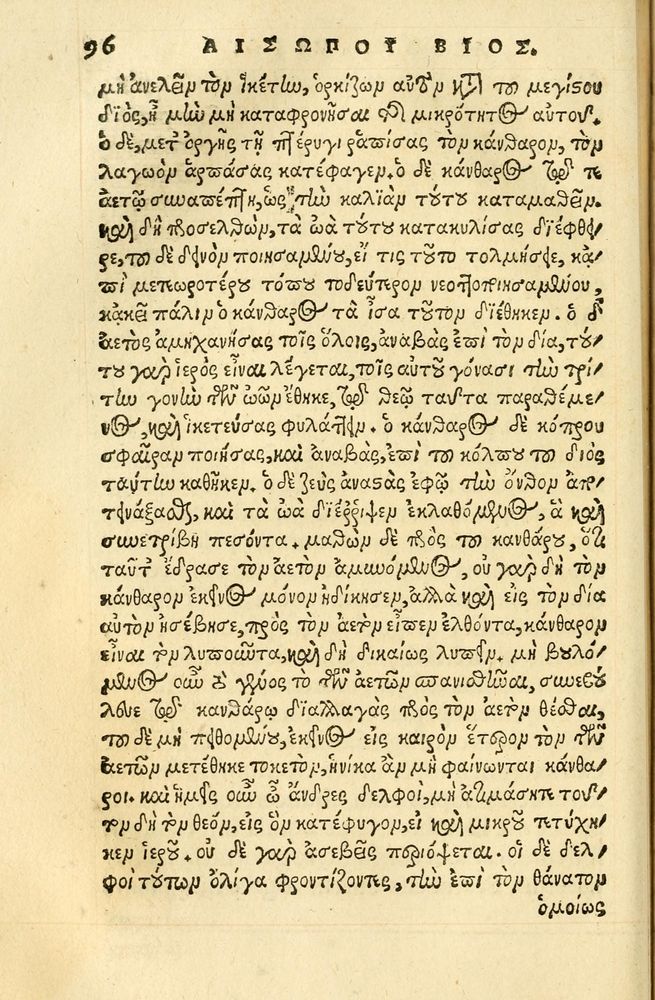 96 ΑΙΣΩΠΟΥ ΒΙΟΣ.
μὴ ἀνελεῖν τὸν ἱκέτην, ὁρκίζων αὐτὸν κατὰ τοῦ μεγίστου
διὸς, ἦ μὴν μὴ καταφρονῆσαι τῆς μικρότητος αὐτοῦ.
ὁ δὲ, μετ' ὀργῆς τῇ πτέρυγι ῥαπίσας τὸν κάνθαρον, τὸν
λαγωὸν ἁρπάσας κατέφαγεν. ὁ δὲ κάνθαρος τῷ τε
ἀετῷ συναπέπτη, ὡς τὴν καλιὰν τούτου καταμαθεῖν.
καὶ δὴ προσελθὼν, τὰ ὠὰ τούτου κατακυλίσας διέφθει/
ρε, τοῦ δὲ δεινὸν ποιησαμένου, εἴ τις τοῦτο τολμήσειε, κἀ/
πὶ μετεωροτέρου τόπου τοδεύτερον νεοττοποιησαμένου,
κἀκεῖ πάλιν ὁ κάνθαρος τὰ ἶσα τοῦτον διέθηκεν. ὁ δ'
ἀετὸς ἀμηχανήσας τοῖς ὅλοις, ἀναβὰς ἐπὶ τὸν δία, τού/
του γὰρ ἱερὸς εἶναι λέγεται, τοῖς αὐτοῦ γόνασι τὴν τρί/
την γονὴν τῶν ὠῶν ἔθηκε, τῷ θεῷ ταῦτα παραθέμε/
νος, καὶ ἱκετεύσας φυλάττειν. ὁ κάνθαρος δὲ κόπρου
σφαῖραν ποιήσας, καὶ ἀναβὰς, ἐπὶ τοῦ κόλπου τοῦ διὸς
ταύτην καθῆκεν. ὁ δὲ ζεὺς ἀναστὰς ἐφῷ τὴν ὄνθον ἀπο/
τινάξασθαι, καὶ τὰ ὠὰ διέῤῥιψεν ἐκλαθόμενος, ἃ καὶ
συνετρίβη πεσόντα. μαθὼν δὲ πρὸς τοῦ κανθάρου, ὅτι
ταῦτ' ἔδρασε τὸν ἀετὸν ἀμυνόμενος, οὐ γὰρ δὴ τὸν
κάνθαρον ἐκεῖνος μόνον ἠδίκησεν, ἀλλὰ καὶ εἰς τὸν δία
αὐτὸν ἠσέβησε, πρὸς τὸν ἀετὸν εἶπεν ἐλθόντα, κάνθαρον
εἶναι τὸν λυποῦντα, καὶ δὴ δικαίως λυπεῖν. μὴ βουλό/
μενος οὖν τὸ γένος τὸ τῶν ἀετῶν σπανισθῆναι, συνεβού
λευε τῷ κανθάρῳ διαλλαγὰς πρὸς τὸν ἀετὸν θέσθαι,
τοῦ δὲ μὴ πειθομένου, ἐκεῖνος εἰς καιρὸν ἕτερον τὸν τῶν
ἀετῶν μετέθηκε τοκετὸν, ἡνίκα ἂν μὴ φαίνωνται κάνθα/
ροι. καὶ ἡμεῖς οὖν ὦ ἄνδρες δελφοὶ, μὴ ἀτιμάσητε τοῦ/
τον δὴ τὸν θεὸν, εἰς ὃν κατέφυγον, εἰ καὶ μικροῦ τετύχη/
κεν ἱεροῦ. οὐ δὲ γὰρ ἀσεβεῖς περιόψεται. οἱ δὲ δελ/
φοὶ τούτων ὀλίγα φροντίζοντες, τὴν ἐπὶ τὸν θάνατον
ὁμοίως